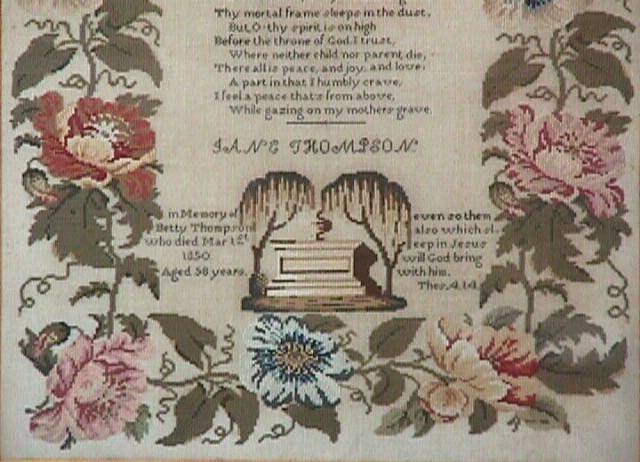 Thy mortal frame sleeps in the dust,
But O thy spirit is on high
Before the throne of God, I trust,
Where neither child nor parent die,
There all is peace, and joy, and love;
A part in that I humbly crave,
I feel a peace that's from above,
While gazing on my mothers grave.
JANE THOMPSON
in Memory of
Betty Thompson
who died Mar 12t
1850
Aged 58 years.
even so them
also which sl-
eep in Jesus
will God bring
with him.
Thes. 4.14.